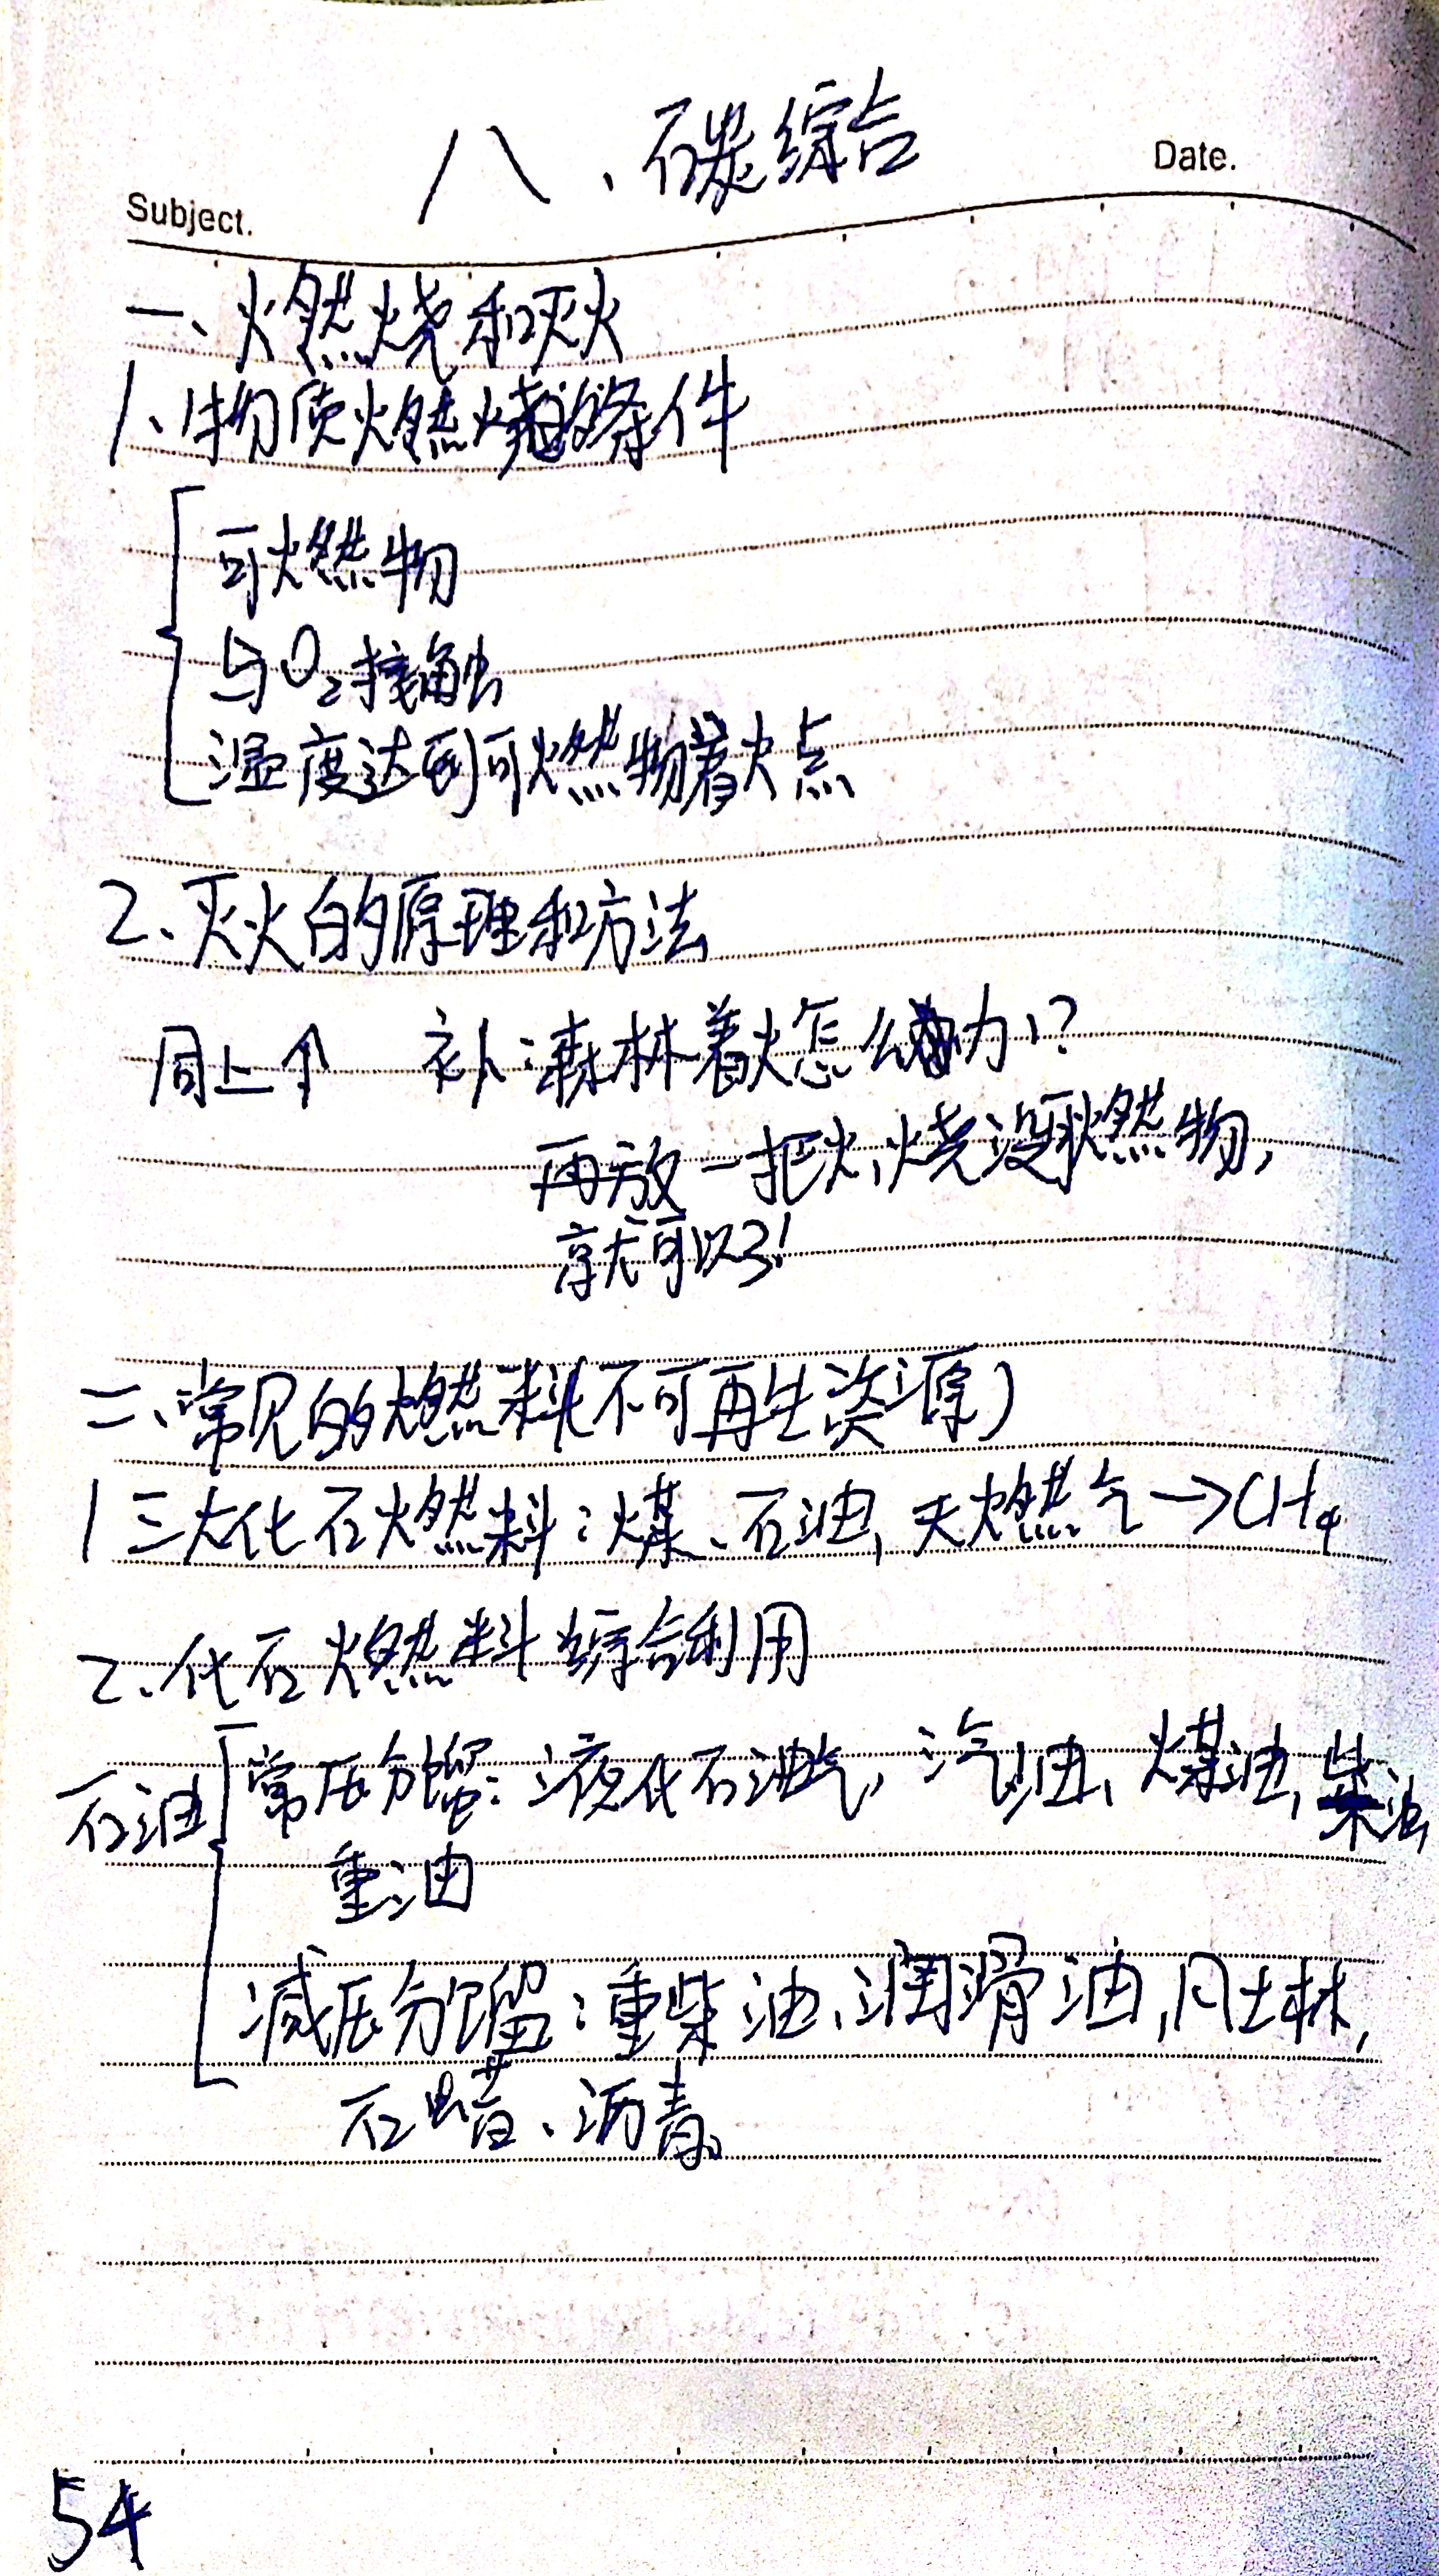 八、碳综合
Subject.
Date.
一、燃烧和灭火
1、物质燃烧的条件
可燃物
与O₂接触
温度达到可燃物着火点
2、灭火的原理和方法
同上个 补:森林着火怎么办?
再放一把火,烧没可燃物,
就可以了!
二、常见的燃料(不可再生资源)
1三大化石燃料:煤、石油,天燃气→CH₄
2、化石燃料综合利用
石油 常压分馏:液化石油气,汽油、煤油,柴油,
重油
减压分馏:重柴油、润滑油,凡士林,
石蜡、沥青。
54